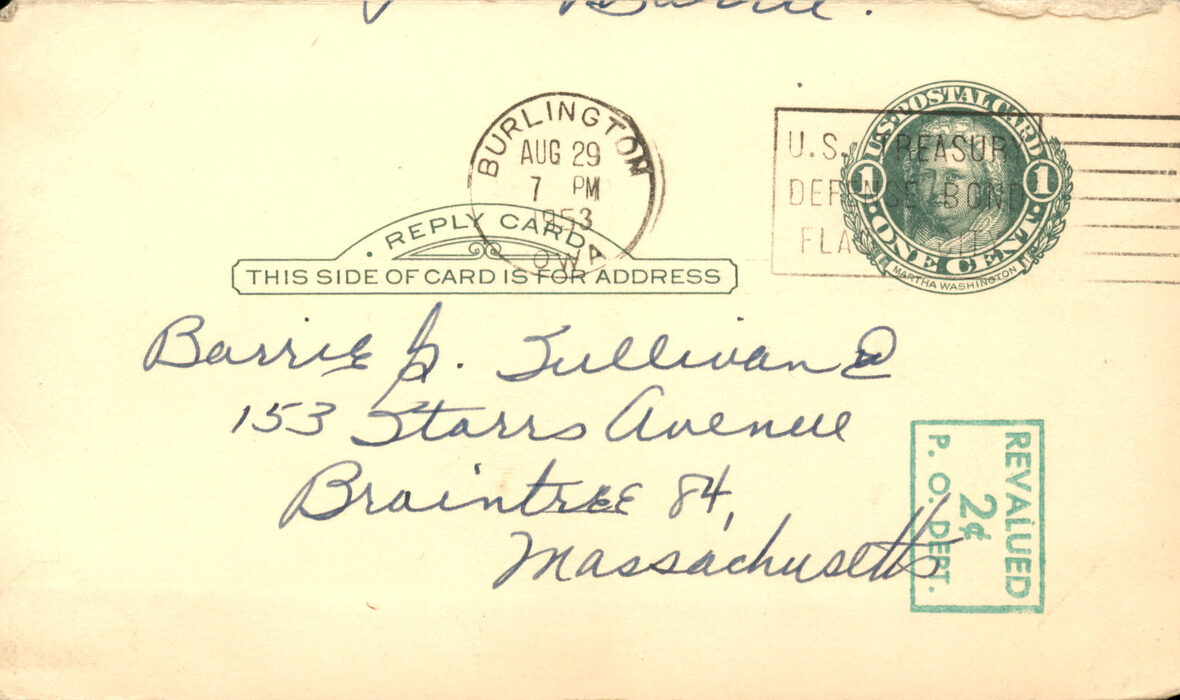 Barrie.
BURLINGTON
AUG 29
7 PM
1953
IOWA
U.S. TREASURY
DEFENSE BOND
FLA
U.S. POSTAL CARD
1 1
ONE CENT
MARTHA WASHINGTON
REPLY CARD
THIS SIDE OF CARD IS FOR ADDRESS
Barrie G. Sullivan
153 Starrs Avenue
Braintree 84,
Massachusetts
REVALUED
2¢
P. O. DEPT.